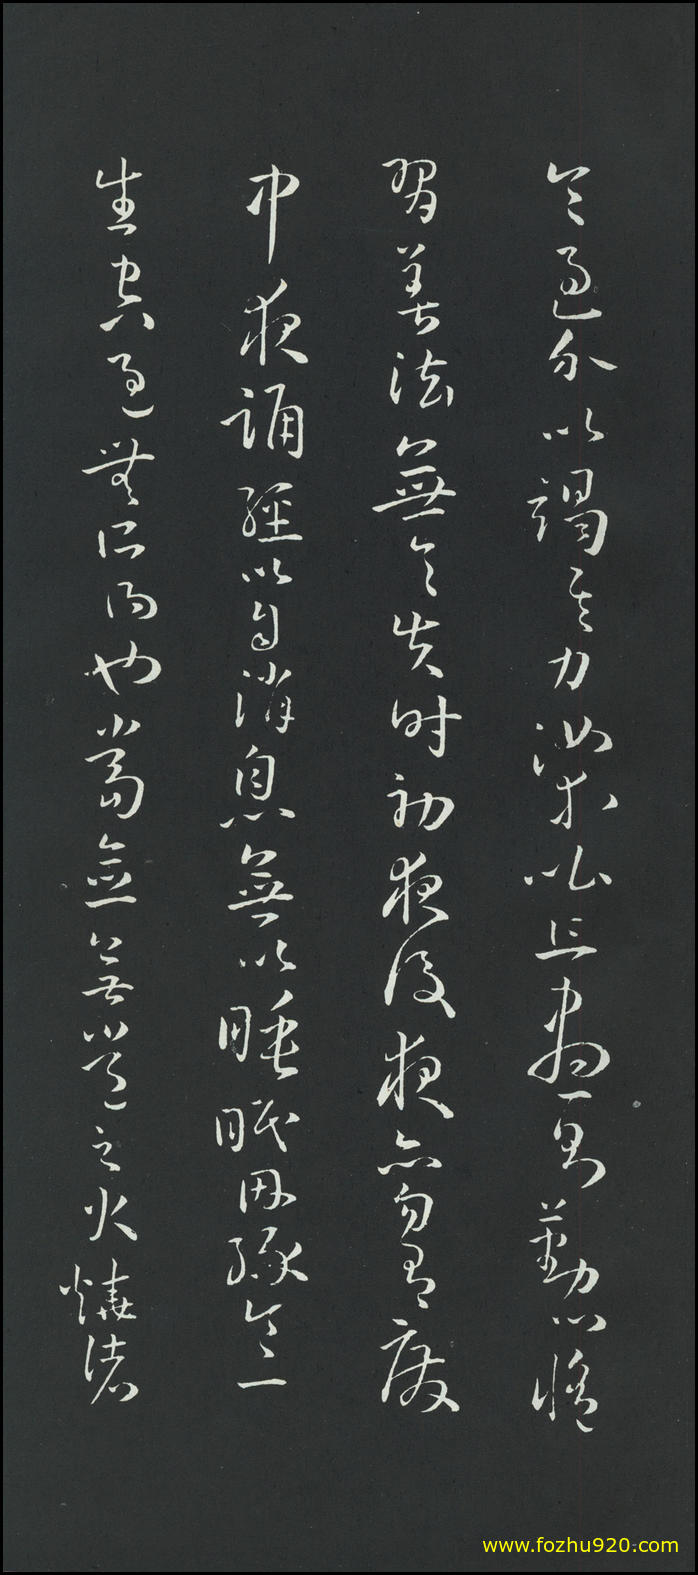 令過分以竭其力汝等比丘晝則勤心修
習善法無令失時初夜後夜亦勿有廢
中夜誦經以自消息無以睡眠因緣令一
生空過無所得也當念無常之火燒諸
www.fozhu920.com